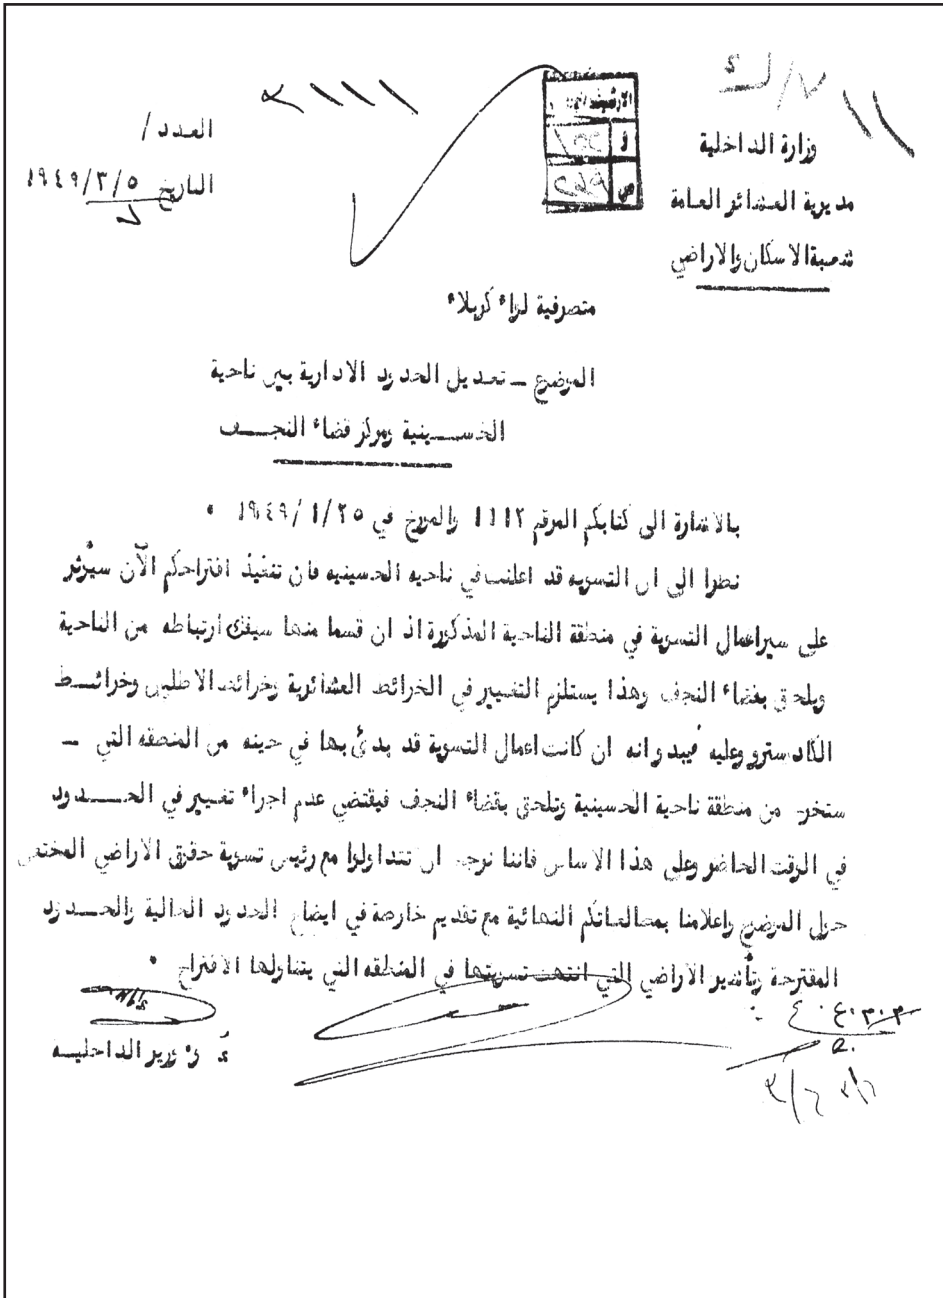 وزارة الداخلية
مديرية العشائر العامة
شعبة الاسكان والاراضي
العدد /
التاريخ ١٩٤٩/٣/٥
متصرفية لواء كربلاء
الموضوع ــ تعديل الحدود الادارية بين ناحية
الحســـينية ومركز قضاء النجـــف
بالاشارة الى كتابكم المرقم ١١١٢ والمورخ في ١٩٤٩/١/٢٥ ٠
نظرا الى ان التسويه قد اعلنت في ناحيه الحسينيه فان تنفيذ اقتراحكم الآن سيؤثر
على سير اعمال التسوية في منطقة الناحية المذكورة اذ ان قسما منها سيفك ارتباطه من الناحية
ويلحق بقضاء النجف وهذا يستلزم التغيير في الخرائط العشائرية وخرائط الاطلس وخرائـــط
الكادسترو وعليه فيبدو انه ان كانت اعمال التسوية قد بدئ بها في حينه من المنطقه التي ــ
ستخرج من منطقة ناحية الحسينية وتلحق بقضاء النجف فيقتضي عدم اجراء تغيير في الحـــدود
في الوقت الحاضر وعلى هذا الاساس فاننا نرجو ان تتداولوا مع رئيس تسوية حقوق الاراضي المختص
حول الموضوع واعلامنا بمطالعاتكم النهائية مع تقديم خارطة في ايضاح الحدود الحالية والحـــدود
المقترحة وتأشير الاراضي التي انتهت تسويتها في المنطقه التي يتناولها الاقتراح ٠
وزير الداخليــة